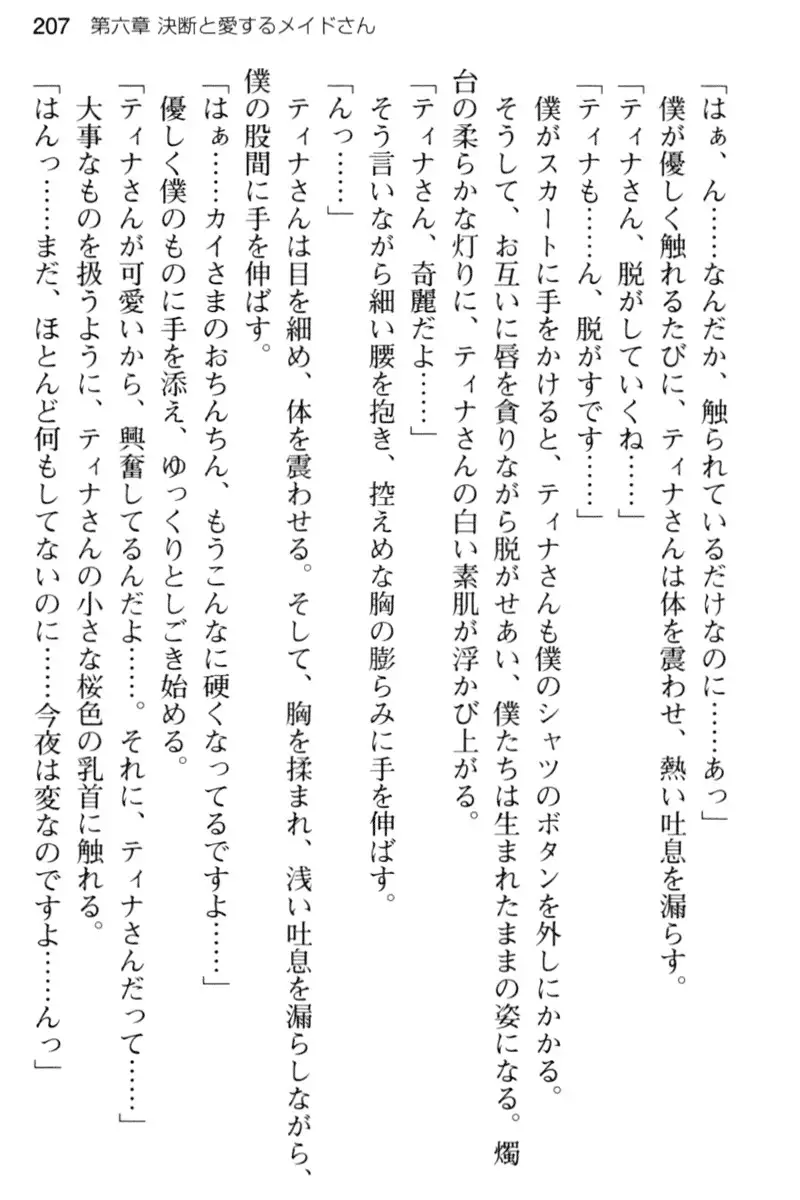 207 第六章 決断と愛するメイドさん
「はぁ、ん……なんだか、触られているだけなのに……あっ」
僕が優しく触れるたびに、ティナさんは体を震わせ、熱い吐息を漏らす。
「ティナさん、脱がしていくね……」
「ティナも……ん、脱がすです……」
僕がスカートに手をかけると、ティナさんも僕のシャツのボタンを外しにかかる。
そうして、お互いに唇を貪りながら脱がせあい、僕たちは生まれたままの姿になる。燭
台の柔らかな灯りに、ティナさんの白い素肌が浮かび上がる。
「ティナさん、奇麗だよ……」
そう言いながら細い腰を抱き、控えめな胸の膨らみに手を伸ばす。
「んっ……」
ティナさんは目を細め、体を震わせる。そして、胸を揉まれ、浅い吐息を漏らしながら、
僕の股間に手を伸ばす。
「はぁ……カイさまのおちんちん、もうこんなに硬くなってるですよ……」
優しく僕のものに手を添え、ゆっくりとしごき始める。
「ティナさんが可愛いから、興奮してるんだよ……。それに、ティナさんだって……」
大事なものを扱うように、ティナさんの小さな桜色の乳首に触れる。
「はんっ……まだ、ほとんど何もしてないのに……今夜は変なのですよ……んっ」